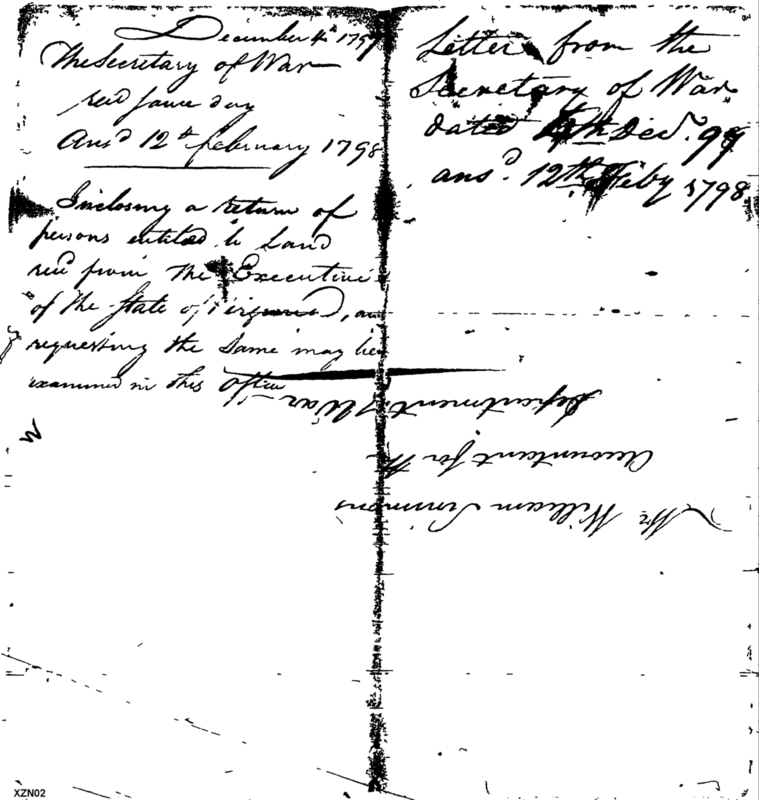 December 4th 1797
The Secretary of War
recd same day
Ansd 12th february 1798
Inclosing a return of
persons entitled to Land
recd from the Executive
of the State of Virginia, an
requesting the Same may be
examined in this office
Letter from the
Secretary of War
dated 4th Decr. 97
ansd. 12th Feby 1798
Mr William Simmons
Accountant for the
Department of War
XZN02